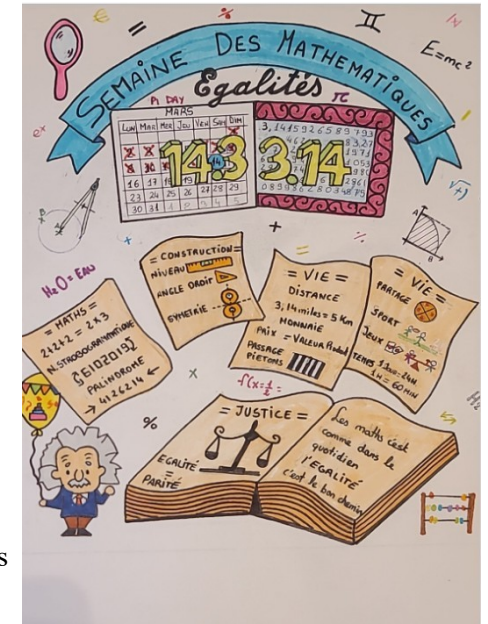 €
=
II
E=mc²
SEMAINE DES MATHEMATIQUES
Egalités
PI DAY
π
MARS
LUN MAR MER JEU VEN SAM DIM
14.3
16 17 18 19
23 24 25 26 27 28 29
30 31 1 2 3 4 5
3,1415926589793
3.14
e^x
H₂O = EAU
= MATHS =
2+2+2 = 2×3
N.STROBOGRAMMATIQUE
PALINDROME
→ 4126214 ←
= CONSTRUCTION =
NIVEAU
ANGLE DROIT
SYMETRIE
= VIE =
DISTANCE
3,14 miles = 5 Km
MONNAIE
PRIX = VALEUR Produit
PASSAGE
PIETONS
= VIE =
PARTAGE
SPORT
JEUX
TEMPS 1 Jour = 24H
1H = 60 MIN
A
B
+
÷
x
%
= JUSTICE =
EGALITÉ
=
PARITÉ
Les maths c'est
comme dans le
quotidien
l'EGALITÉ
c'est le bon chemin
s